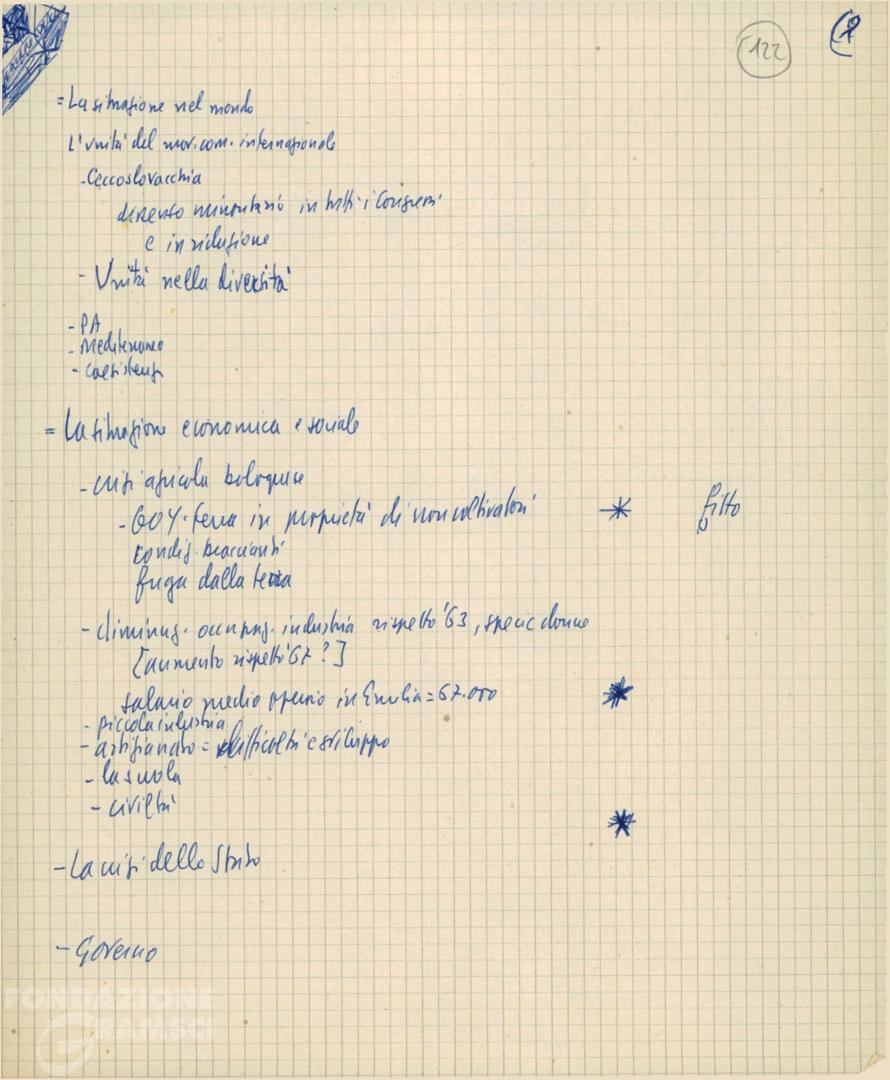 122
= La situazione nel mondo
L'unità del mov. com. internazionale
- Cecoslovacchia
dissenso minoritario in tutti i Congressi
e in riduzione
- Unità nella diversità
- PA
- Mediterraneo
- coesistenza
= La situazione economica e sociale
- crisi agricola bolognese
- 60% terra in proprietà di non coltivatori * fitto
condiz. braccianti
fuga dalla terra
- diminuz. occupaz. industria rispetto '63, specie donne
[aumento rispetto '67?]
salario medio operaio in Emilia = 67.000 *
- piccola industria
- artigianato = difficoltà e sviluppo
- la scuola
- civiltà
*
- La crisi dello Stato
- Governo
FONDAZIONE
GRAMSCI